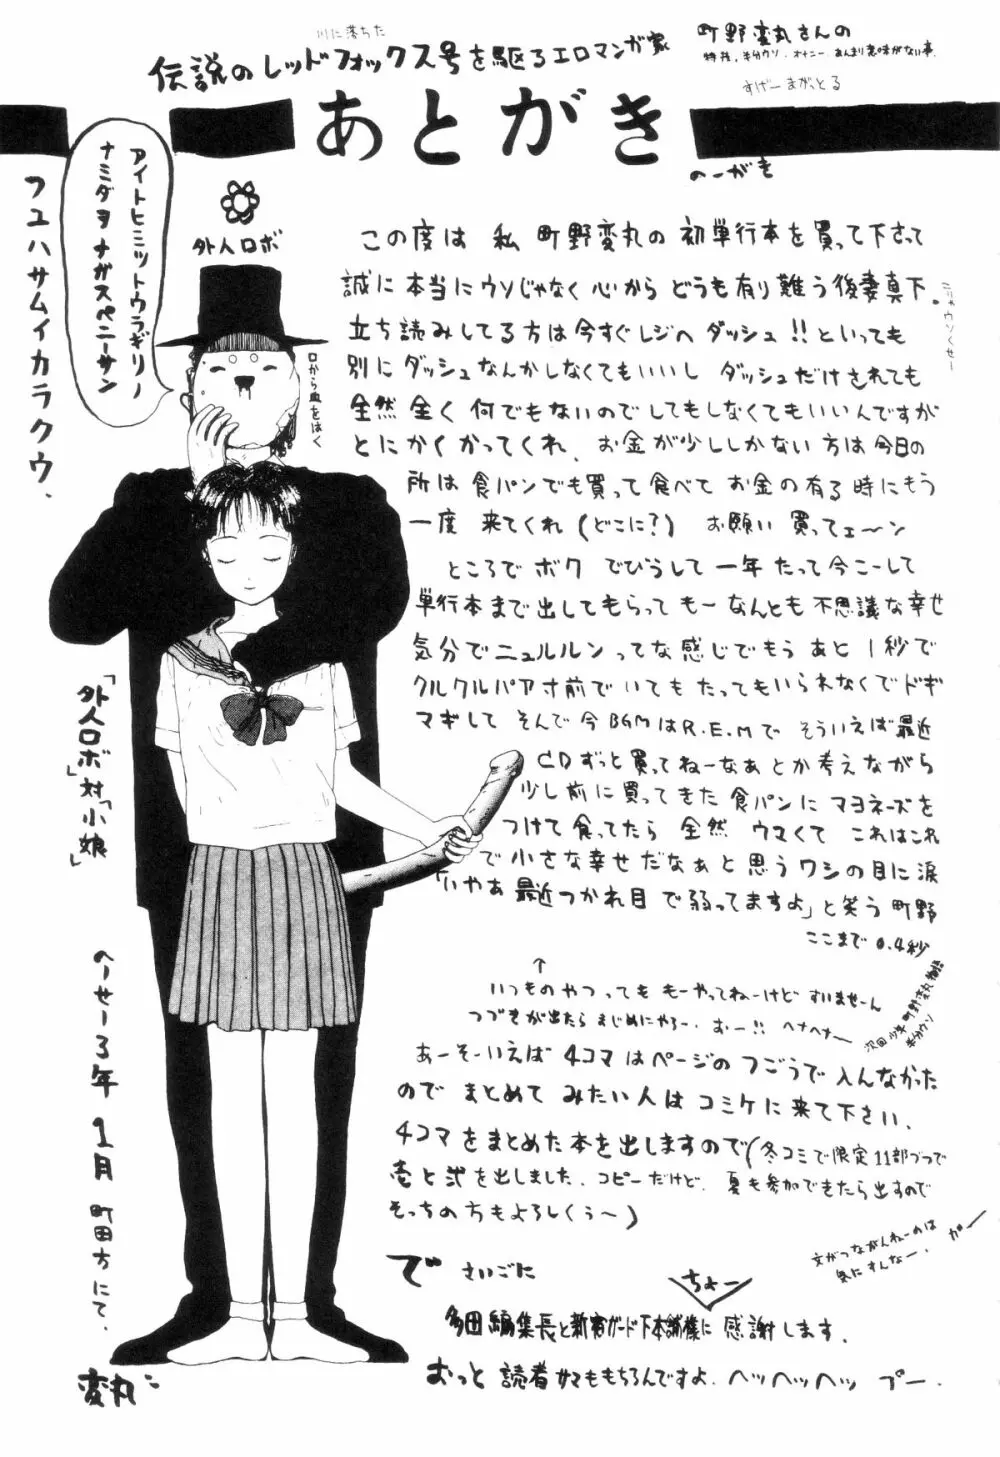 川に落ちた
伝説のレッドフォックス号を駆るエロマンガ家
町野変丸さんの
特技。半分ウソ。オナニー。あんまり意味がない事。
すげーまがっとる
あとがき
のーがき
アイトヒミットウラギリノ
ナミダヲナガスペニーサン
フユハサムイカラクウ.
外人ロボ
口から血をはく
この度は 私 町野変丸の 初単行本を買って下さって
誠に本当にウソじゃなく心から どうも有り難う後妻真下。
こりゃウソくせー
立ち読みしてる方は今すぐレジへ ダッシュ!!といっても
別にダッシュなんかしなくてもいいし ダッシュだけされても
全然全く何でもないのでしてもしなくてもいいんですが
とにかくかってくれ. お金が少ししかない方は今日の
所は食パンでも買って食べて お金の有る時にもう
一度 来てくれ(どこに?) お願い 買ってェ〜ン
ところでボク でびうして一年たって今こーして
単行本まで出してもらって もーなんとも不思議な幸せ
気分でニュルルンってな感じでもう あと1秒で
クルクルパア寸前でいてもたってもいられなくてドギ
マギして そんで今BGMはR.E.Mで そういえば最近
CDずっと買ってねーなぁとか考えながら
少し前に買ってきた食パンにマヨネーズを
つけて食ってたら 全然 ウマくて これはこれ
で小さな幸せだなぁと思うワシの目に涙
「いやあ最近つかれ目で弱ってますよ」と笑う町野
ここまで0.4秒
↑
いつものやつっても もーやってねーけど すいませーん
つづきが出たら まじめにやろー. おー!! ヘナヘナー
次回 少年町野変丸物語
半分ウソ
あーそーいえば 4コマはページのつごうで入んなかった
のでまとめてみたい人はコミケに来て下さい.
4コマをまとめた本を出しますので(冬コミで限定11部づつで
壱と弐を出しました. コピーだけど. 夏も参加できたら出すので
そっちの方もよろしくぅ〜)
文がつながんねーのは
気にすんなー. ガー
で さいごに
ちょー
多田編集長と新宿ガード下本舗様に 感謝します.
おっと 読者サマももちろんですよ. ヘッヘッヘッ プー.
「外人ロボ」対「小娘」
へーせー3年 1月 町田方にて.
変丸